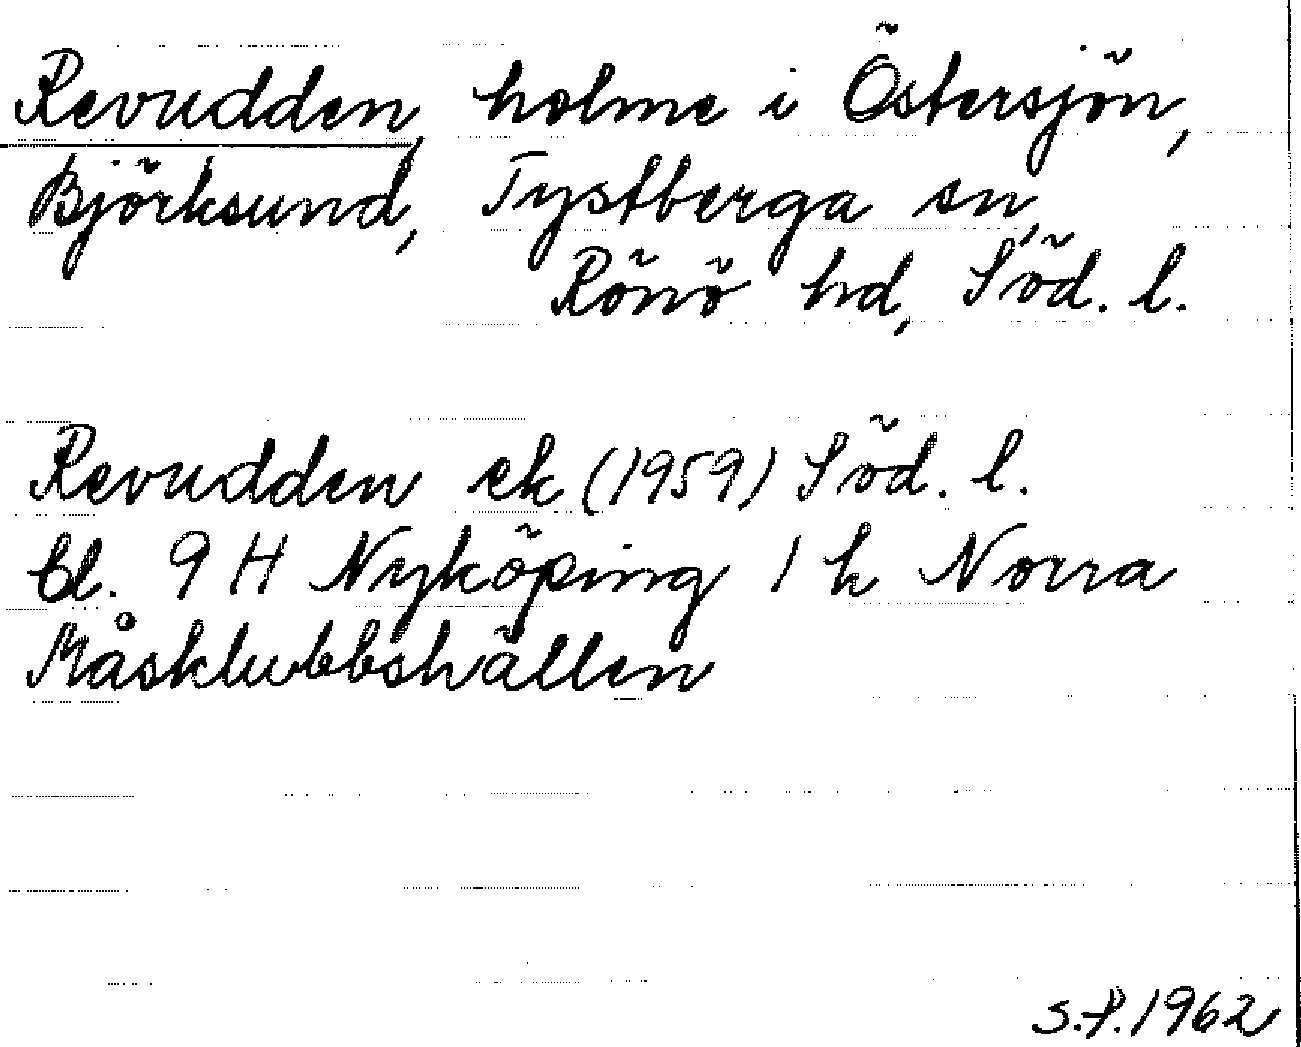 Revudden, holme i Östersjön,
Björksund, Tystberga sn,
Rönö hd, Söd. l.
Revudden ek (1959) Söd. l.
bl. 9 H Nyköping 1 h Norra
Måsklubbshällen
S.P. 1962